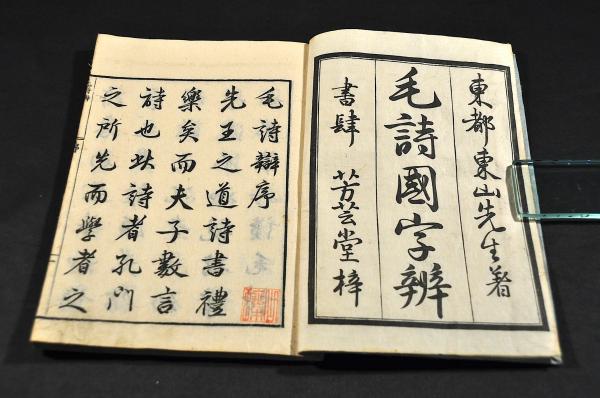 東都東山先生著
毛詩國字辨
書肆 芳芸堂梓
毛詩辯序
先王之道詩書禮
樂矣而夫子數言
詩也詩者孔門
之所先而學者之